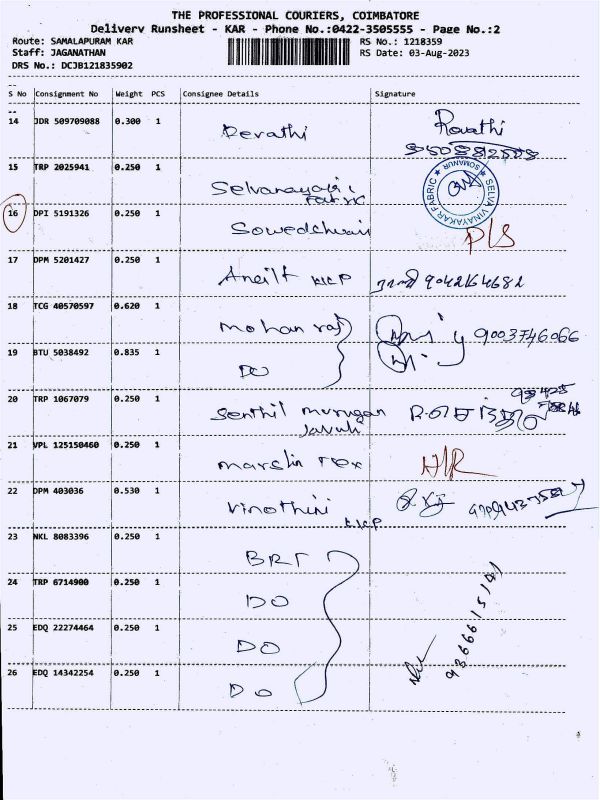 THE PROFESSIONAL COURIERS, COIMBATORE
Delivery Runsheet - KAR - Phone No.:0422-3505555 - Page No.:2
Route: SAMALAPURAM KAR RS No.: 1218359
Staff: JAGANATHAN RS Date: 03-Aug-2023
DRS No.: DCJB121835902
S No Consignment No Weight PCS Consignee Details Signature
14 JDR 509709088 0.300 1 Revathi Revathi
15 TRP 2025941 0.250 1 Selvanayagi
SELVA VINAYAKAR FABRIC SOMANUR
16 DPI 5191326 0.250 1
17 DPM 5201427 0.250 1 KCP 9042164682
18 TCG 40570597 0.620 1 Mohan raj 9003746066
19 BTU 5038492 0.835 1 DO
20 TRP 1067079 0.250 1 Senthil murugan
21 VPL 125150460 0.250 1 Marslin Tex
22 DPM 403036 0.530 1 Vinothini
KCP
23 NKL 8083396 0.250 1 BRT
24 TRP 6714900 0.250 1 DO
25 EDQ 22274464 0.250 1 DO
26 EDQ 14342254 0.250 1 DO
9366615141